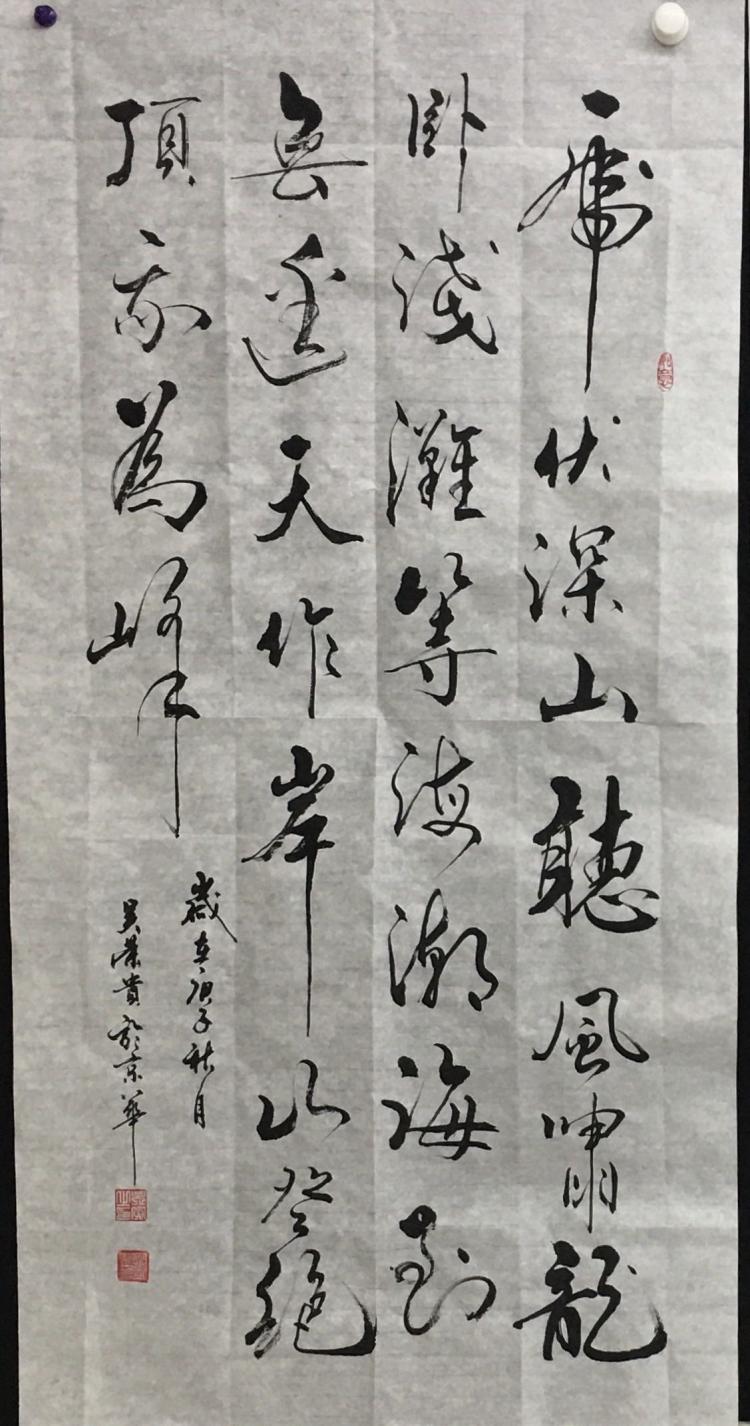 虎伏深山聽風嘯龍
臥淺灘等海潮海到
無邊天作岸山登絕
頂我為峰
歲在庚子秋月
吳榮貴於京華